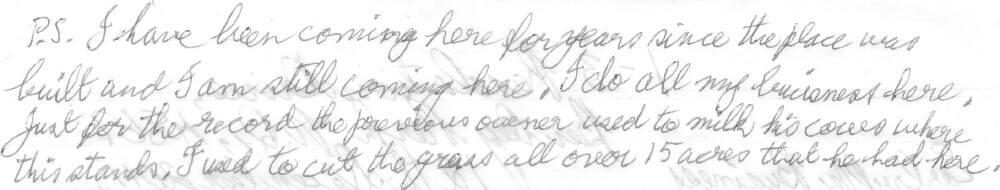 P.S. I have been coming here for years since the place was
built and I am still coming here. I do all my buisness here.
Just for the record the previous owner used to milk his cows where
this stands. I used to cut the grass all over 15 acres that he had here.